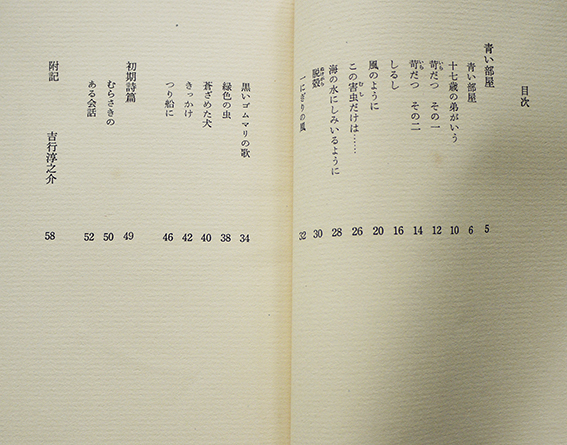 目次
青い部屋 5
青い部屋 6
十七歳の弟がいう 10
苛だつ その一 12
苛だつ その二 14
しるし 16
風のように 20
この害虫だけは…… 26
海の水にしみいるように 28
脱殻 30
一にぎりの風 32
黒いゴムマリの歌 34
緑色の虫 38
蒼ざめた犬 40
きっかけ 42
つり船に 46
初期詩篇 49
むらさきの 50
ある会話 52
附記 吉行淳之介 58